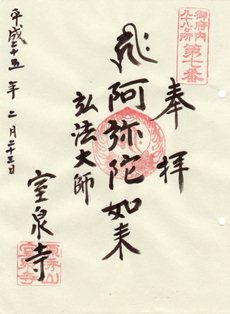 御府内
八十八ヶ所
第七番
奉拝
阿弥陀如来
弘法大師
平成二十五年二月二十三日
室泉寺